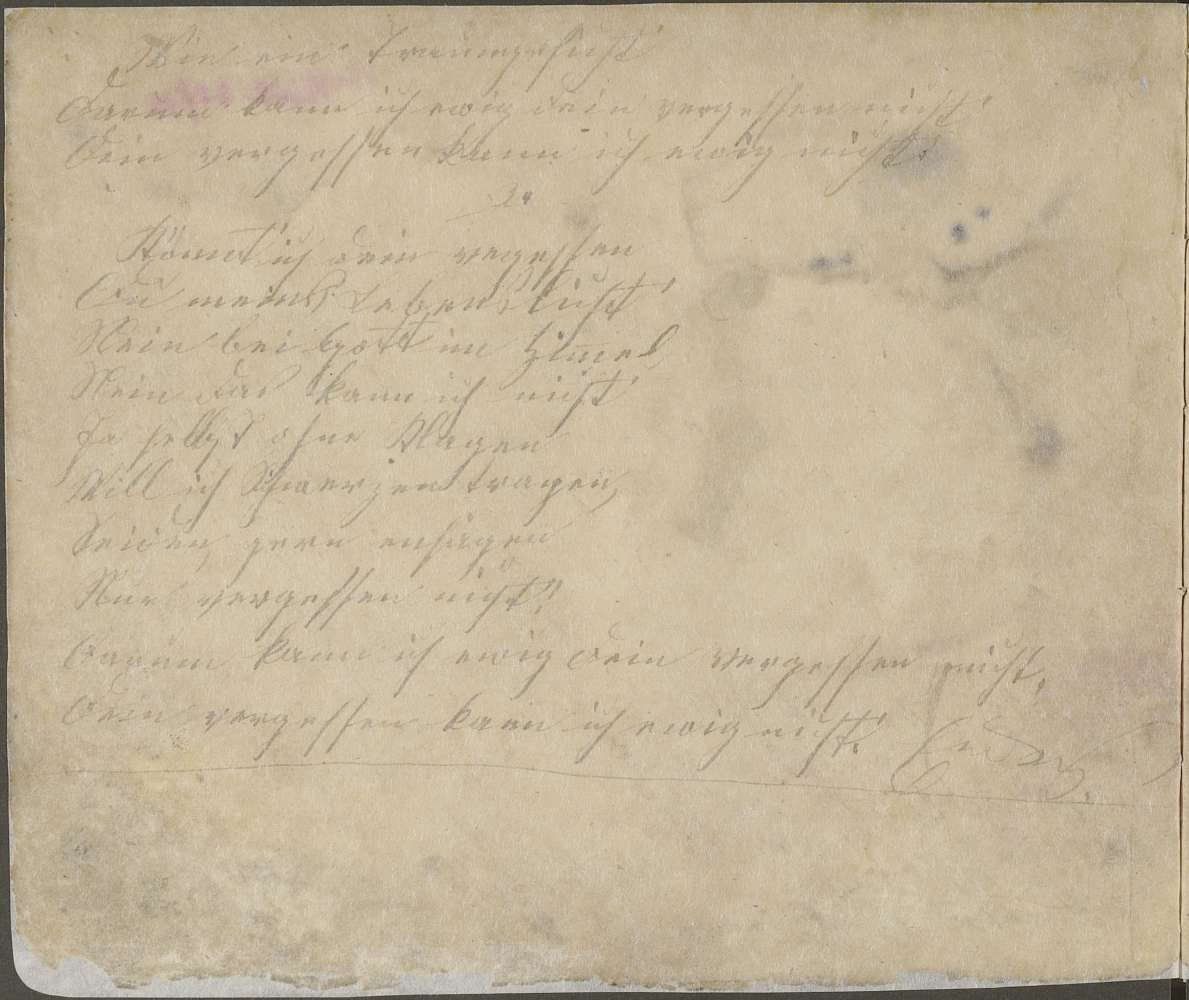 Wie ein Traumgesicht
Darum kann ich ewig dein vergessen nicht.
Dein vergessen kann ich ewig nicht.
3.
Könnt ich dein vergessen
Du meins Lebens Licht
Nein bei Gott im Himel
Nein das kann ich nicht
Ja selbst ohne Klagen
Will ich Schmerzen tragen,
gern ensagen
Nur vergessen nicht!
Darum kann ich ewig dein vergessen nicht,
Dein vergessen kann ich ewig nicht.